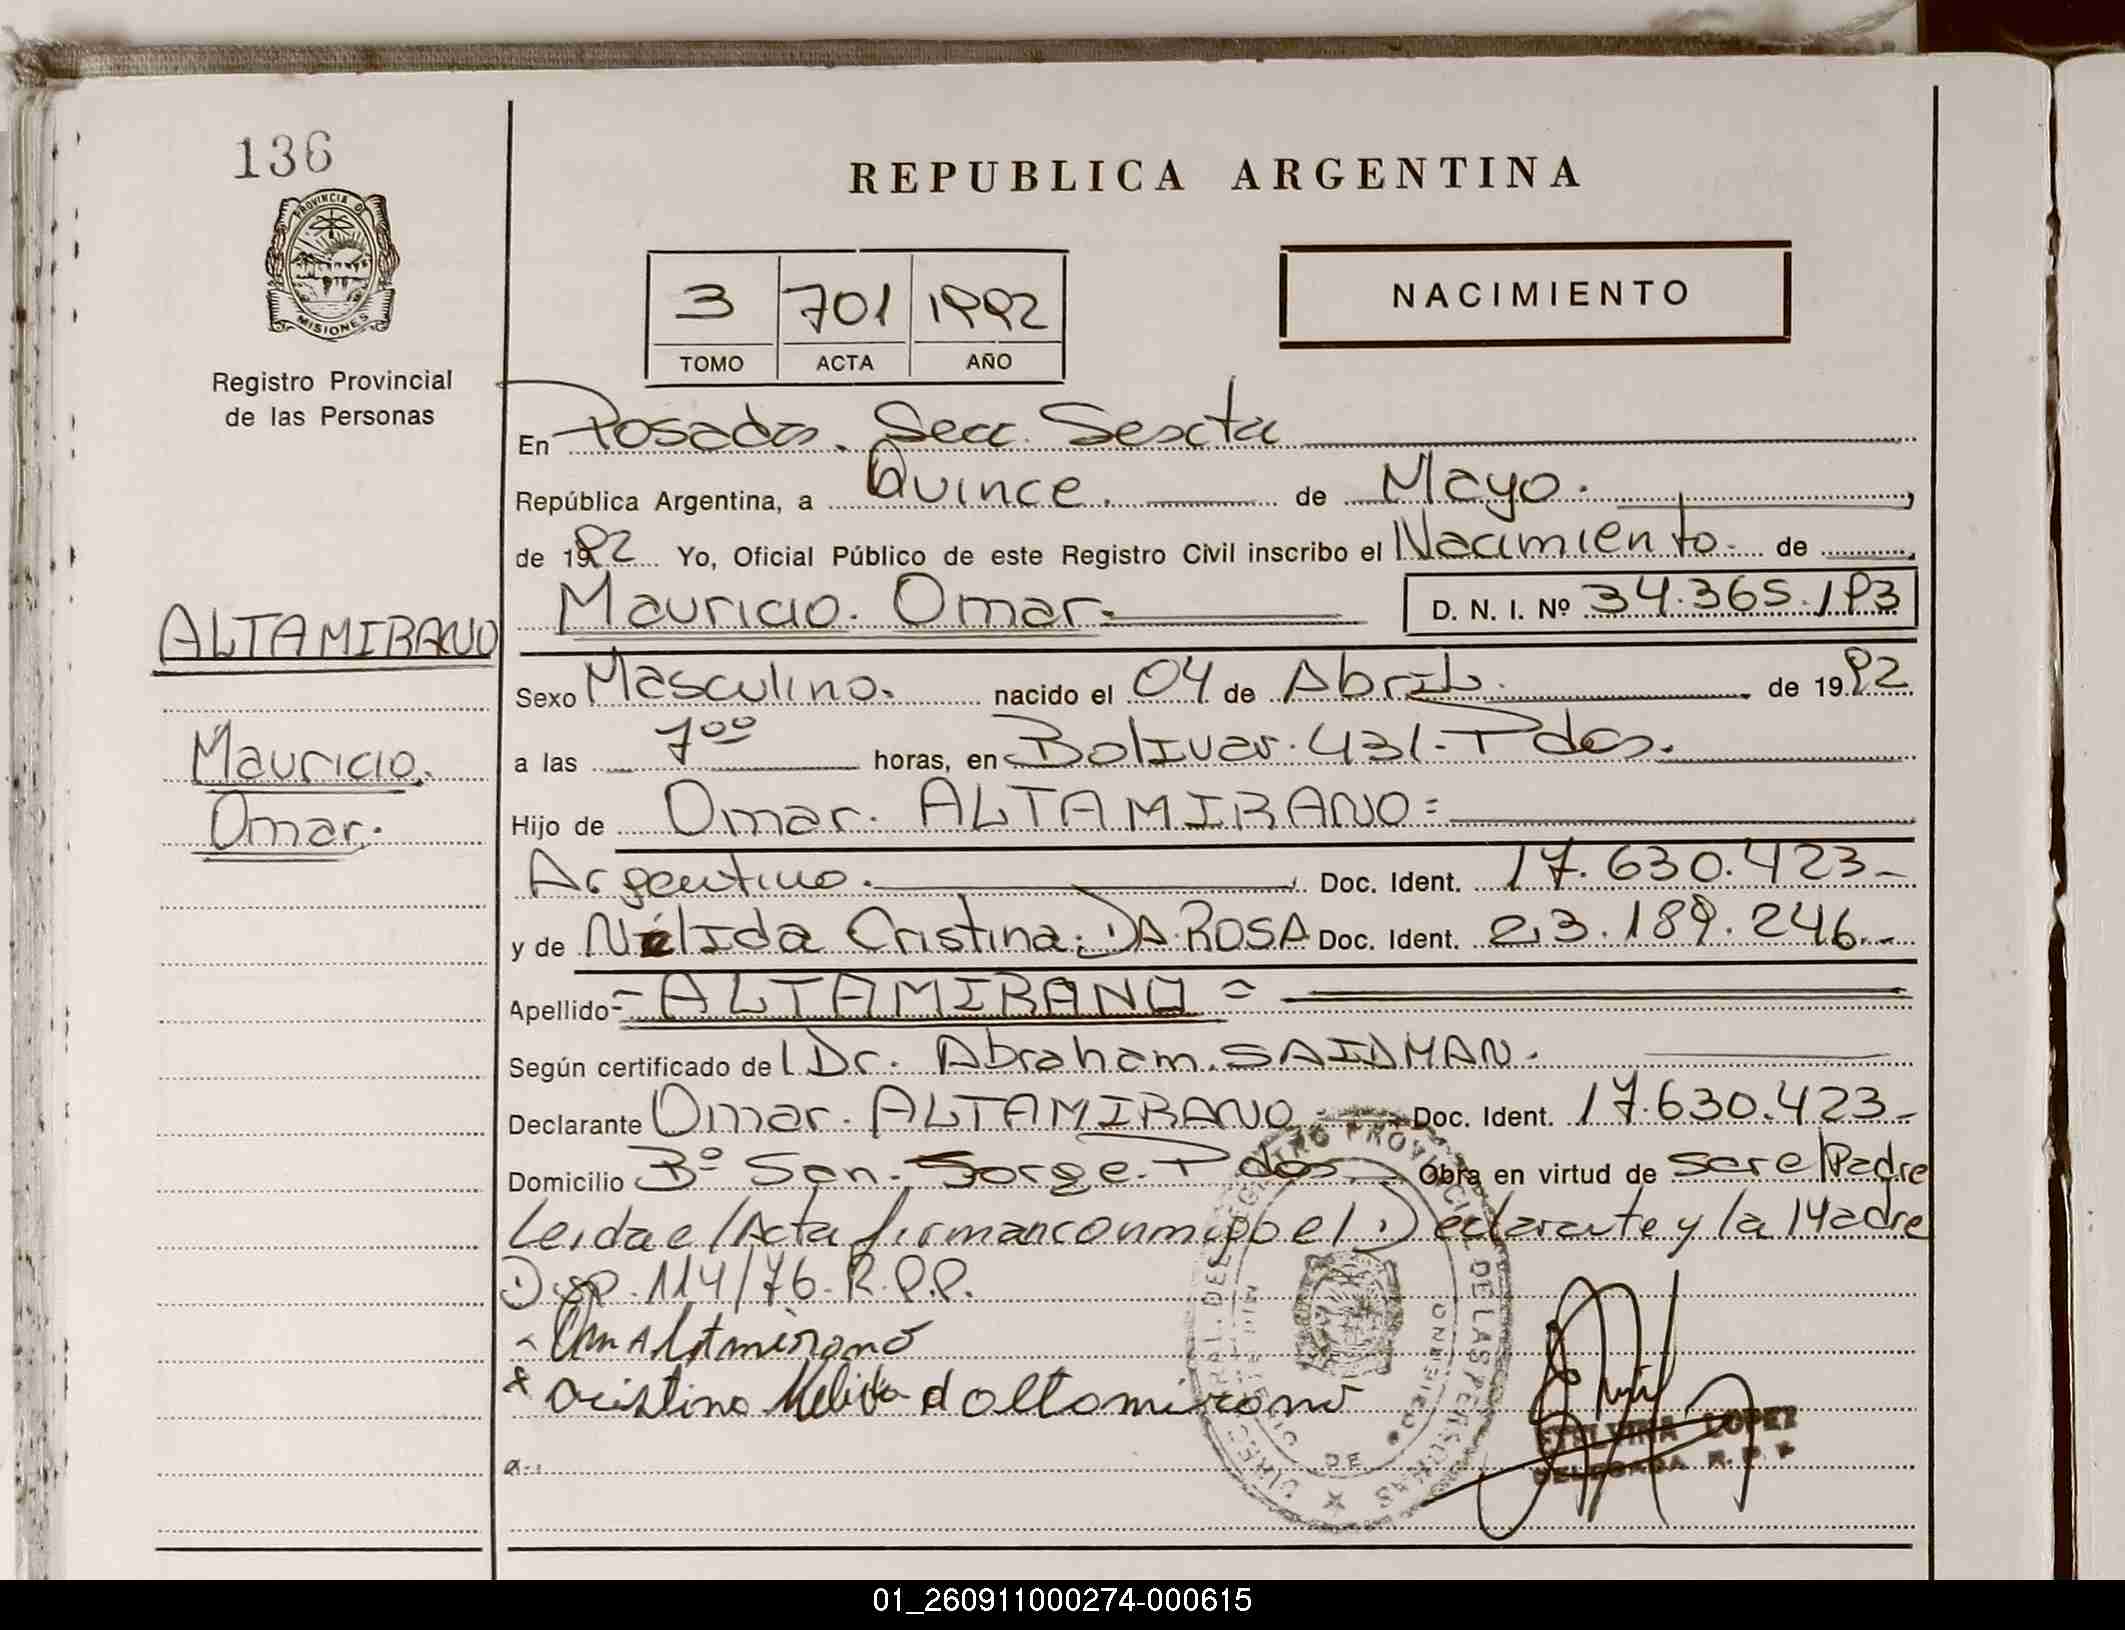 136
PROVINCIA D
MISIONES
Registro Provincial
de las Personas
REPUBLICA ARGENTINA
3 701 1992
TOMO ACTA AÑO
NACIMIENTO
En Posadas. Secc. Sexta
República Argentina, a Quince. de Mayo.
de 1992 Yo, Oficial Público de este Registro Civil inscribo el Nacimiento. de
Mauricio. Omar. D. N. I. Nº 34.365.193
ALTAMIRANO
Mauricio.
Omar.
Sexo Masculino. nacido el 04 de Abril. de 1992
a las 7ºº horas, en Bolivar. 431. Pdas.
Hijo de Omar. ALTAMIRANO=
Argentino. Doc. Ident. 17.630.423-
y de Nélida Cristina. DA ROSA Doc. Ident. 23.189.246.-
Apellido =ALTAMIRANO=
Según certificado de Dr. Abraham. SAIDMAN.
Declarante Omar. ALTAMIRANO Doc. Ident. 17.630.423-
Domicilio Bº San. Jorge. Pdas Obra en virtud de ser el Padre
Leida el Acta firman conmigo el Declarante y la Madre
Disp. 114/76. R.P.P.
Altamirano
Cristina Nelida d altamirano
LOPEZ
DELEGADA R. P. P
01_260911000274-000615